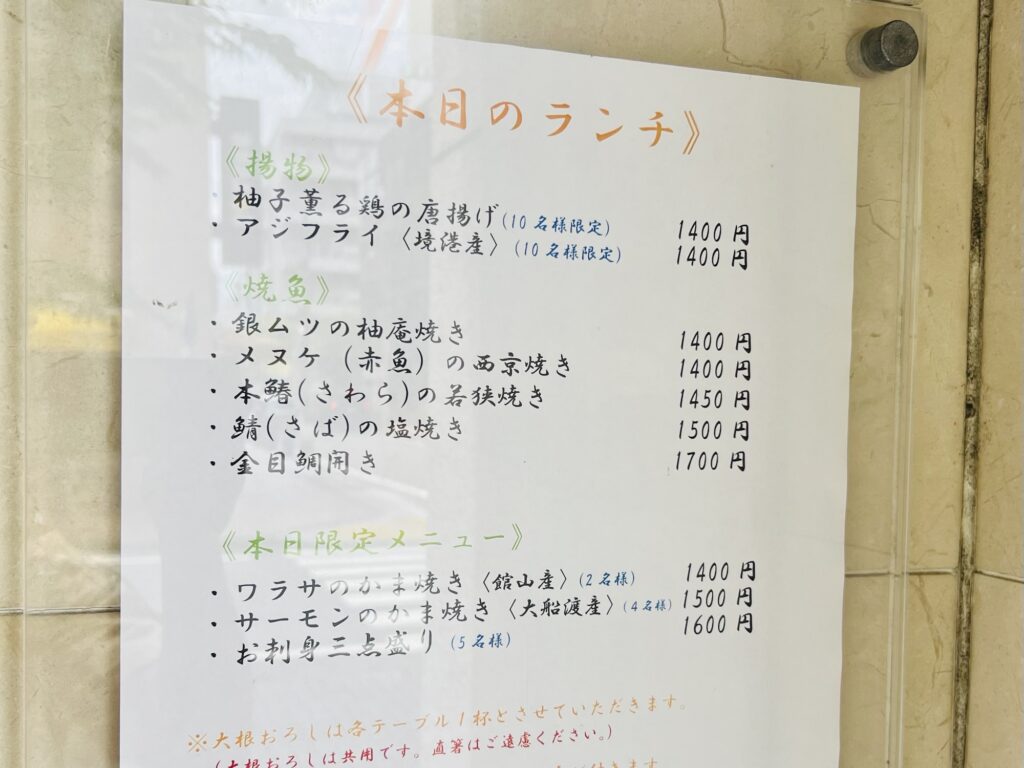 《本日のランチ》
《揚物》
・柚子薫る鶏の唐揚げ(10名様限定) 1400円
・アジフライ〈境港産〉(10名様限定) 1400円
《焼魚》
・銀ムツの柚庵焼き 1400円
・メヌケ(赤魚)の西京焼き 1400円
・本鰆(さわら)の若狭焼き 1450円
・鯖(さば)の塩焼き 1500円
・金目鯛開き 1700円
《本日限定メニュー》
・ワラサのかま焼き〈館山産〉(2名様) 1400円
・サーモンのかま焼き〈大船渡産〉(4名様) 1500円
・お刺身三点盛り(5名様) 1600円
※大根おろしは各テーブル1杯とさせていただきます。
(大根おろしは共用です。直箸はご遠慮ください。)
付きます